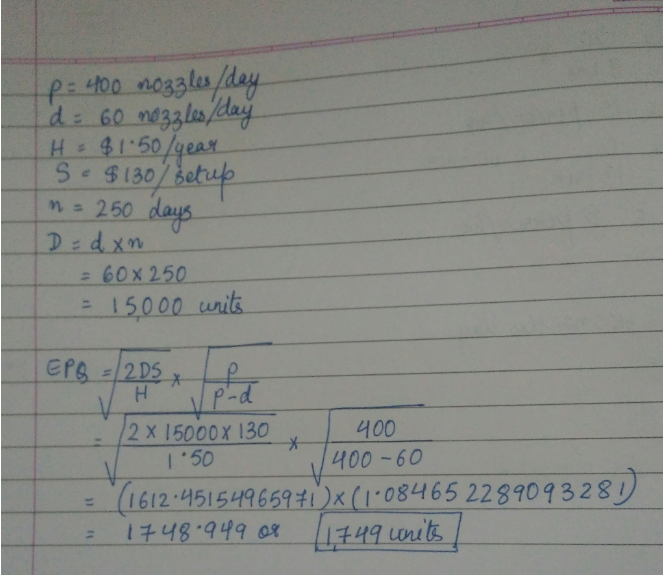 p = 400 nozzles/day
d = 60 nozzles/day
H = $1.50/year
S = $130/setup
n = 250 days
D = d x n
= 60 x 250
= 15,000 units
EPQ = √(2DS/H) x √(p/(p-d))
= √((2 x 15000 x 130)/1.50) x √(400/(400-60))
= (1612.45154965971) x (1.0846522890932 81)
= 1748.949 or 1,749 units